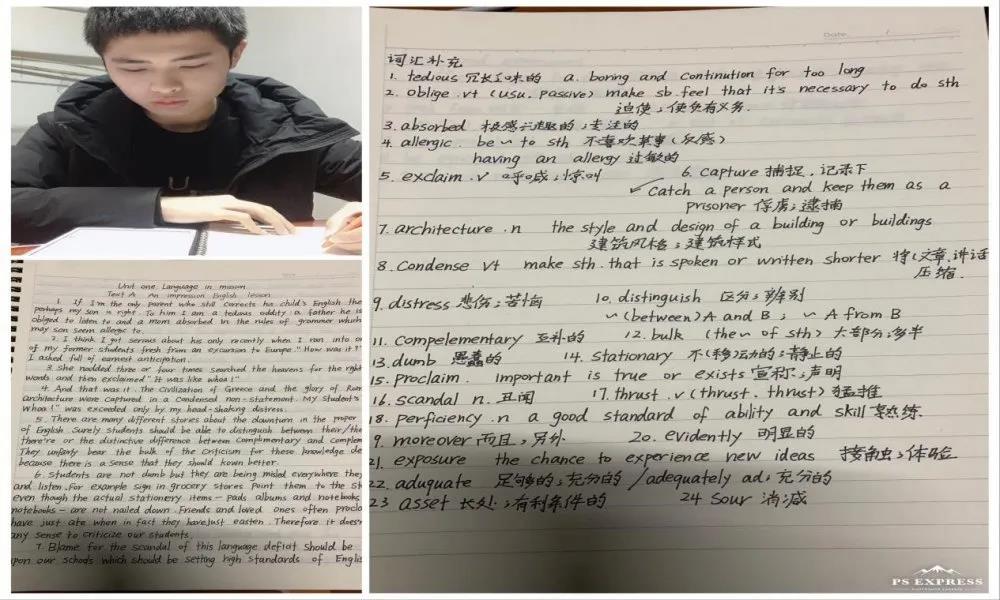 Unit one Language in mission
Text A An impression English lesson
1. If I'm the only parent who still corrects his child's English the
perhaps my son is right. To him I am a tedious oddity: a father he is
obliged to listen to and a mom absorbed in the rules of grammer which
my son seem allergic to.
2. I think I got serous about his only recently when I ran into o
of my former students fresh from an excursion to Europe. "How was it?"
I asked full of earnest anticipation.
3. She nodded three or four times searched the heavens for the righ
words and then exclaimed "It was like whoa!"
4. And that was it. The Civilization of Greece and the glory of Rom
architecture were captured in a Condensed non-statement. My student's
"Whoa!" was exceeded only by my head-shaking distress.
5. There are many different stories about the downturn in the proper
of English. Surely students should be able to distinguish between their/the
there're or the distinctive difference between Complimentary and complem
They unfairly bear the bulk of the criticism for these knowledge de
because there is a sense that they should kown better.
6. Students are not dumb but they are being misled everywhere they
and listen. For example sign in grocery stores Point them to the st
even though the actual stationery items — Pads albums and notebooks
notebooks — are not nailed down. Friends and loved ones often procla
have just ate when in fact they have just easten. Therefore it does
any sense to criticize our students.
7. Blame for the scandal of this language defiat should be
upon our schods which should be setting high standards of Englis
Date /
词汇补充
1. tedious 冗长乏味的 a. boring and continution for too long
2. oblige .vt (usu. passive) make sb. feel that it's necessary to do sth
迫使;使负有义务.
3. absorbed 极感兴趣的;专注的
4. allergic. be ~ to sth 不喜欢某事(反感)
having an allergy 过敏的
5. exclaim .v 呼喊;惊叫 6. Capture 捕捉,记录下
Catch a person and keep them as a
prisoner 俘虏;逮捕
7. architecture .n the style and design of a building or buildings
建筑风格;建筑样式
8. Condense vt make sth. that is spoken or written shorter 将(文章、讲话
压缩.
9. distress 悲伤;苦恼 10. distinguish 区分;辨别
~(between) A and B; ~ A from B
11. Complementary 互补的 12. bulk (the ~ of sth) 大部分;多半
13. dumb 愚蠢的 14. Stationary 不(移)动的;静止的
15. proclaim. important is true or exists 宣称;声明
16. scandal n. 丑闻 17. thrust .v (thrust. thrust) 猛推
18. perficiency .n a good standard of ability and skill 熟练.
19. moreover 而且;另外 20. evidently 明显的
21. exposure the chance to experience new ideas 接触;体验
22. aduquate 足够的;充分的 /adequately ad. 充分的
23 asset 长处;有利条件的 24 Sour 消减
PS EXPRESS